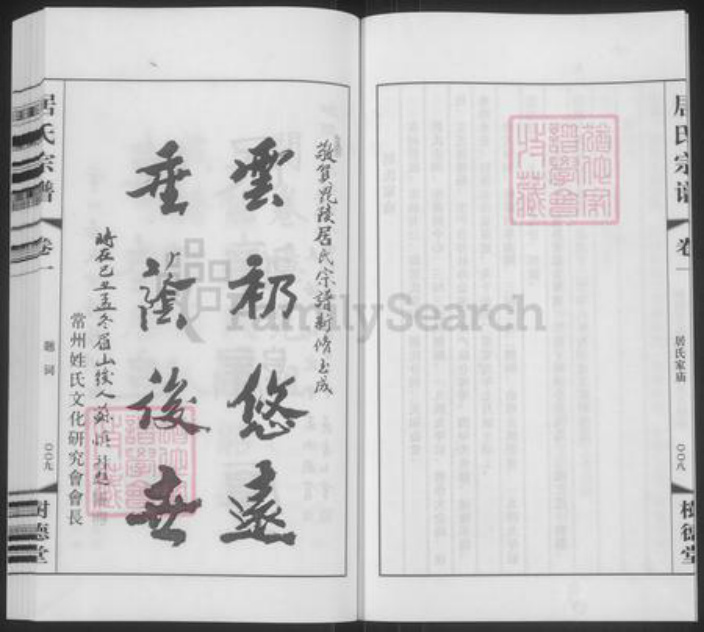 居氏宗譜
卷一
居氏家庙
〇〇八
樹德堂
敬賀毘陵居氏宗譜新修告成
雲礽悠遠
垂蔭後世
時在己丑孟冬眉山後人蘇慎
常州姓氏文化研究會會長
居氏宗譜
卷一
題詞
〇〇九
樹德堂
譜學會
特藏
FamilySearch